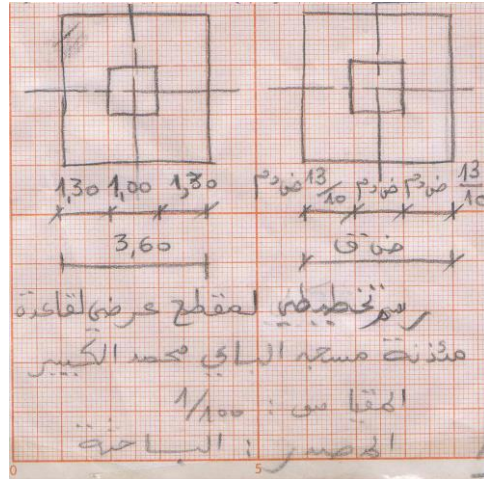 1,30 1,00 1,30
13/10 ض د م ض د م 13/10 ض د م
3,60
ض ق
رسم تخطيطي لمقطع عرضي لقاعدة
مئذنة مسجد الباي محمد الكبير
المقياس : 1/100
المصدر : الباحثة
0 5